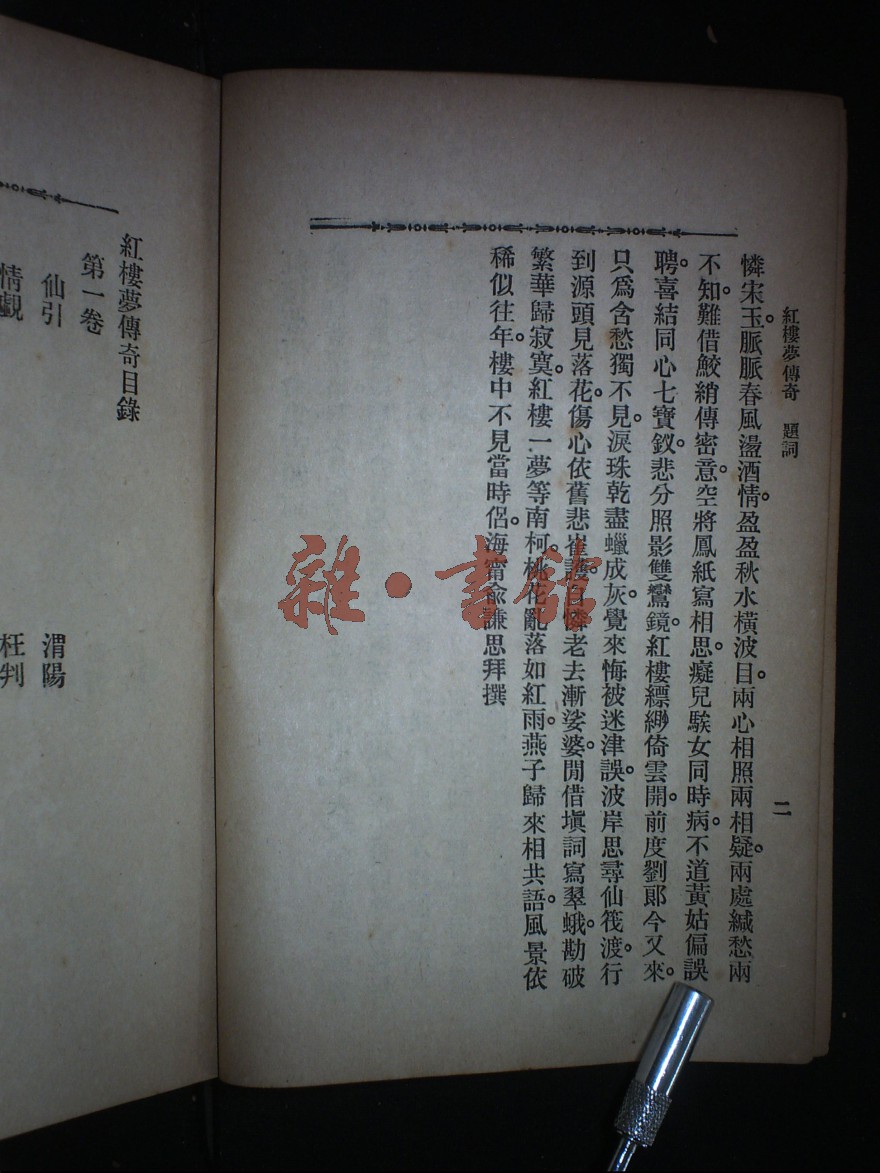 紅樓夢傳奇 題詞
二
憐宋玉。脈脈春風盪酒情。盈盈秋水橫波目。兩心相照兩相疑。兩處緘愁兩
不知。難借鮫綃傳密意。空將鳳紙寫相思。癡兒騃女同時病。不道黃姑偏誤
聘。喜結同心七寶釵。悲分照影雙鸞鏡。紅樓縹緲倚雲開。前度劉郎今又來。
只爲含愁獨不見。淚珠乾盡蠟成灰。覺來悔被迷津誤。波岸思尋仙筏渡。行
到源頭見落花。傷心依舊悲崔護。自憐老去漸娑婆。閒借塡詞寫翠蛾。勘破
繁華歸寂寞。紅樓一夢等南柯。桃花亂落如紅雨。燕子歸來相共語。風景依
稀似往年。樓中不見當時侶。海甯兪謙思拜撰
紅樓夢傳奇目錄
第一卷
仙引
渭陽
情覷
枉判
雜·書館